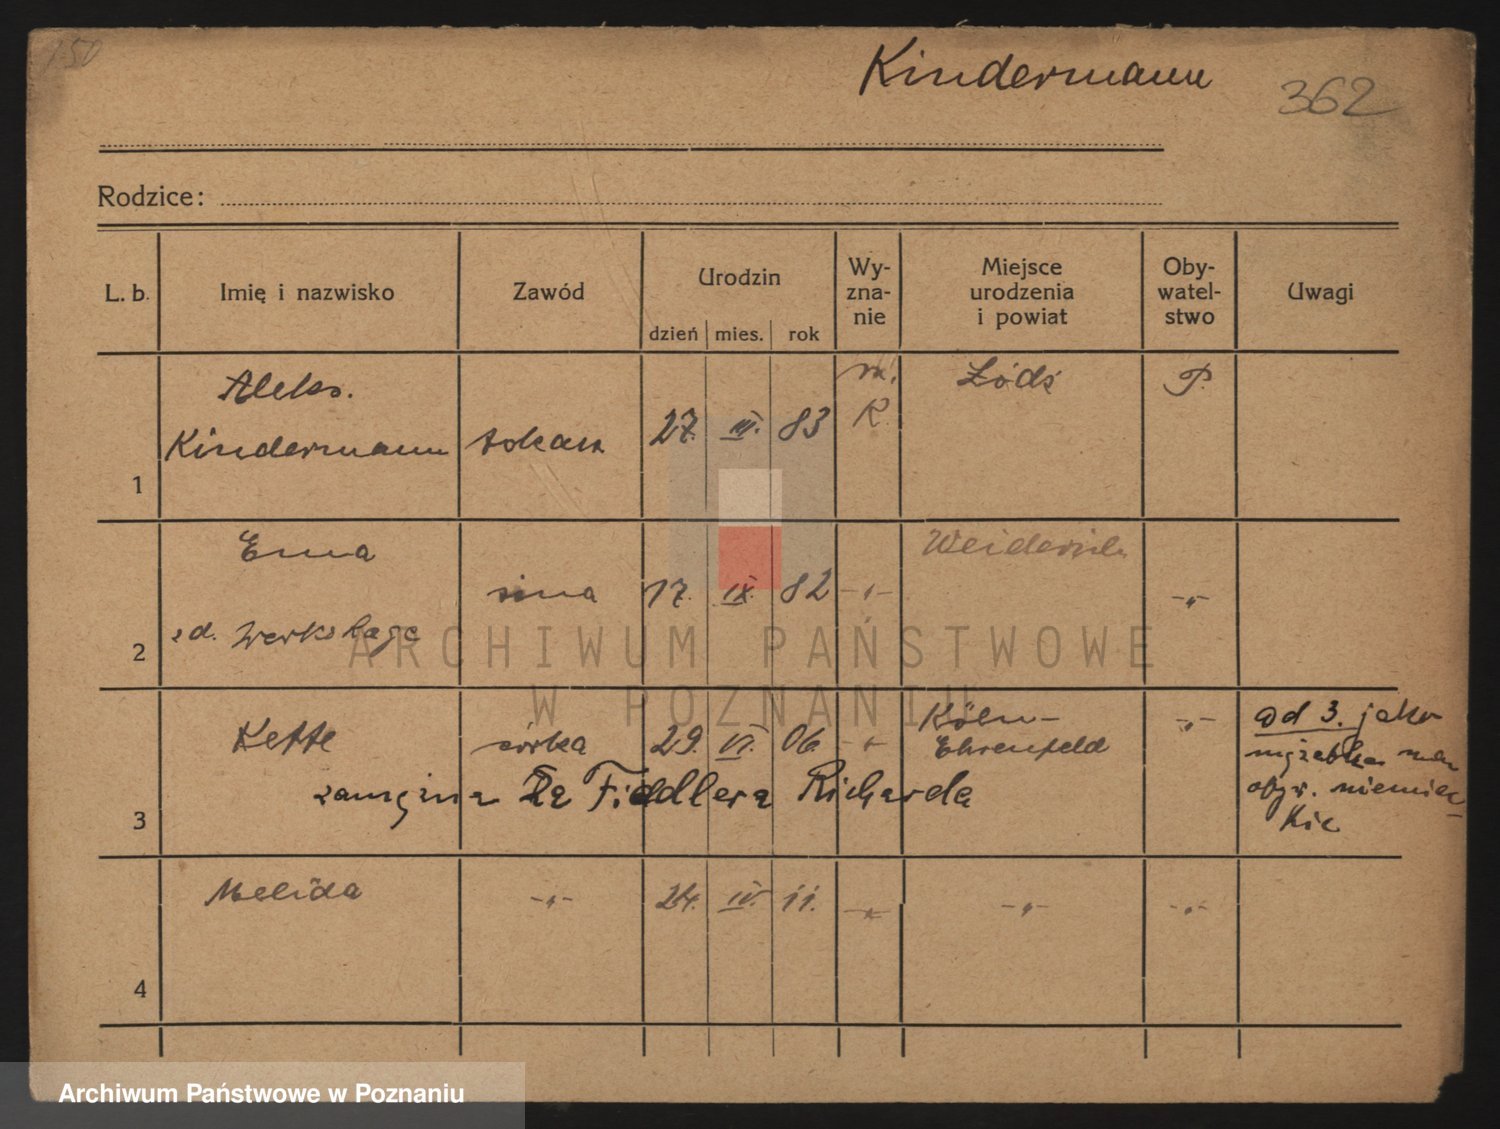 150
Kindermann
362
Rodzice:
L. b. Imię i nazwisko Zawód Urodzin Wy-zna-nie Miejsce urodzenia i powiat Oby-watel-stwo Uwagi
dzień mies. rok
Aleks. Łódź P.
Kindermann tokarz 27. III. 83 R.
1
Erna
żona 17. IX. 82 -"- -"-
zd.
2
Kette córka 29. VI. 06. -"- Köln-Ehrenfeld -"-
zamężna za Fiedlera Richarda
od 3. jako
mężatka ma
obyw. niemiec-
kie
3
Melida -"- 24. IV. 11. -"- -"- -"-
4
ARCHIWUM PAŃSTWOWE
W POZNANIU
Archiwum Państwowe w Poznaniu